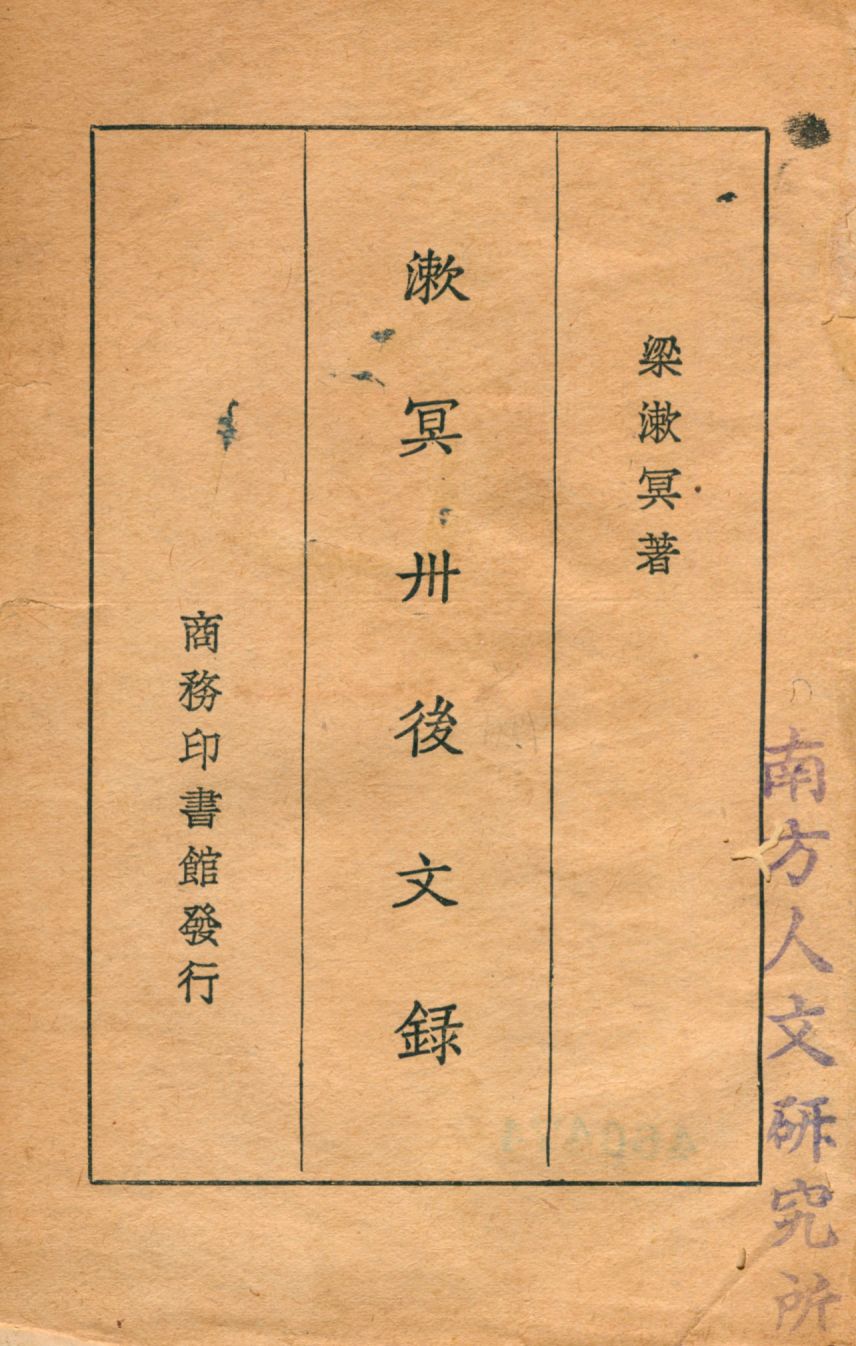 梁漱冥著
漱冥卅後文録
商務印書館發行
南方人文研究所